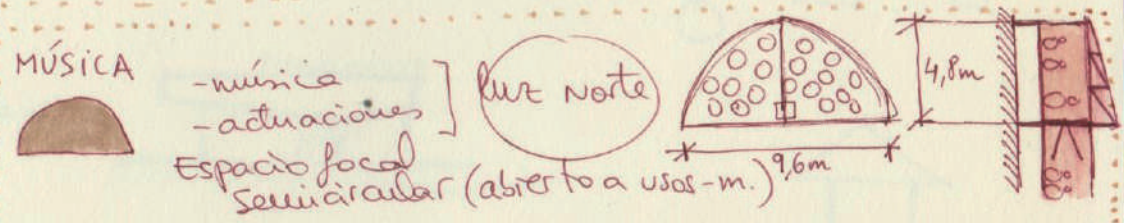 MÚSICA
-música
-actuaciones
luz Norte
Espacio focal
semicircular (abierto a usos-m.)
9,6m
4,8m